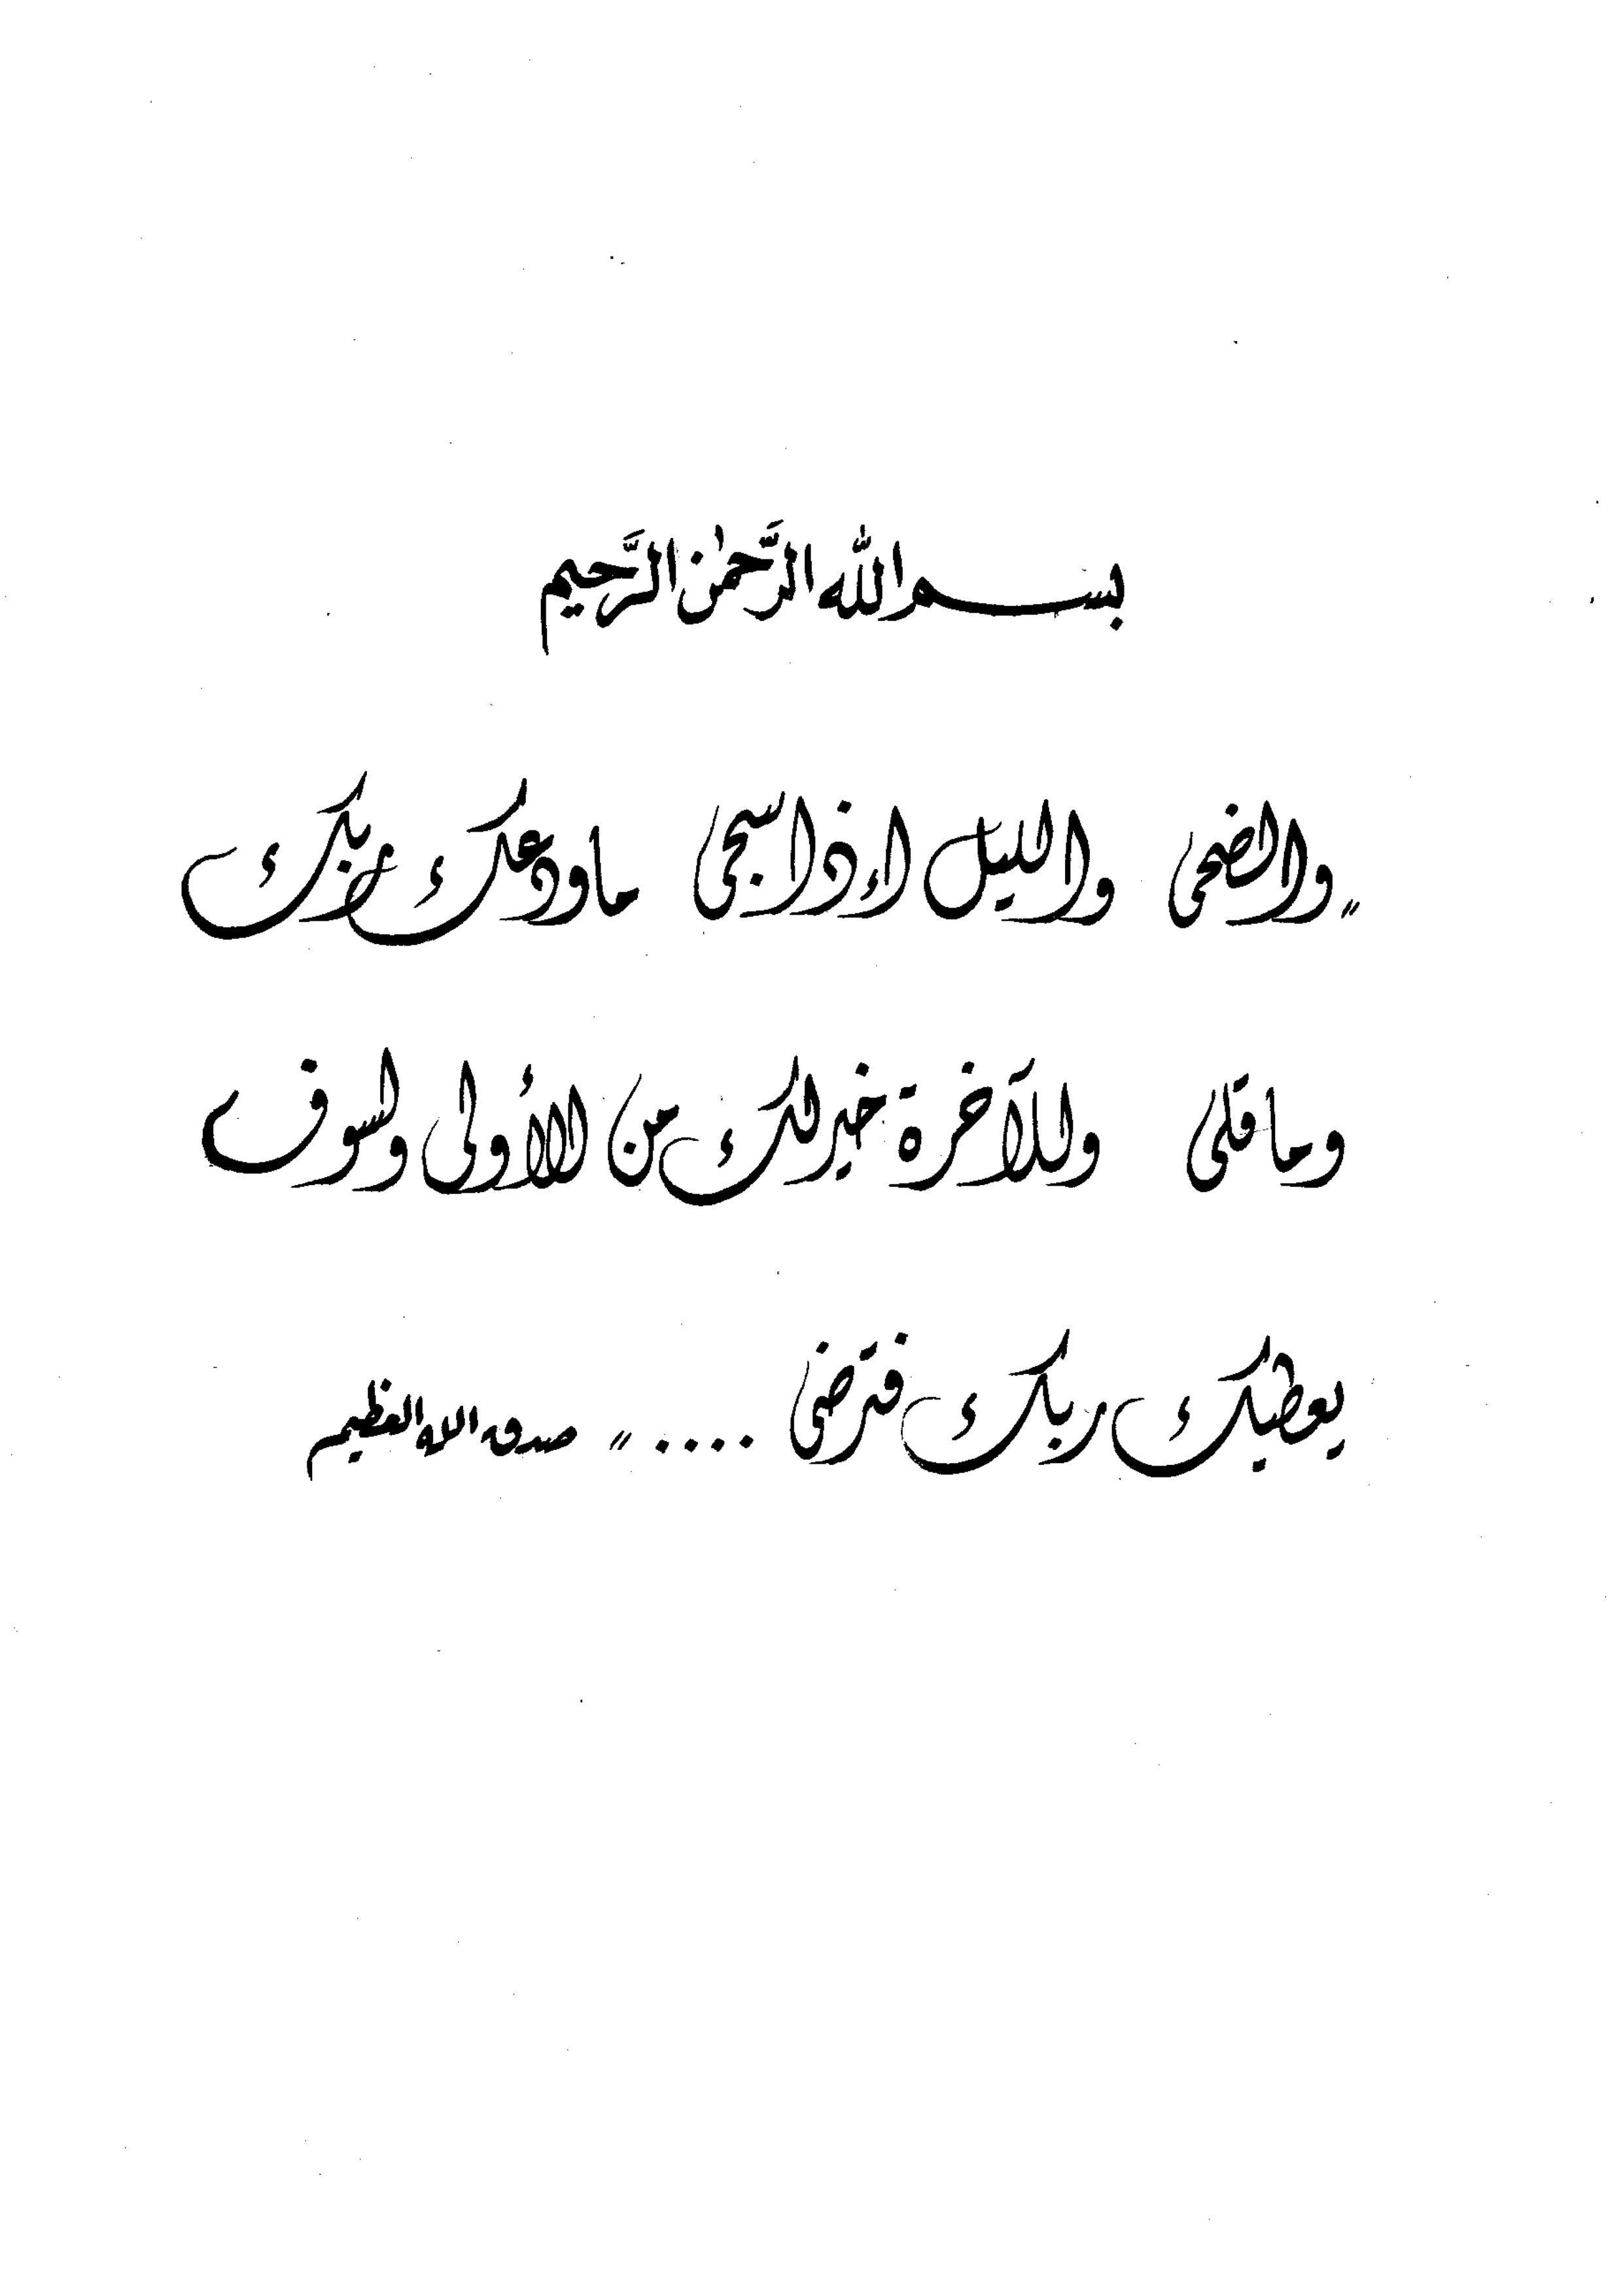 بسم الله الرَّحمٰن الرَّحيم
" والضحى والليل إذا سجى ما ودعك ربك
وما قلى وللآخرة خير لك من الأولى ولسوف
يعطيك ربك فترضى .... " صدق الله العظيم